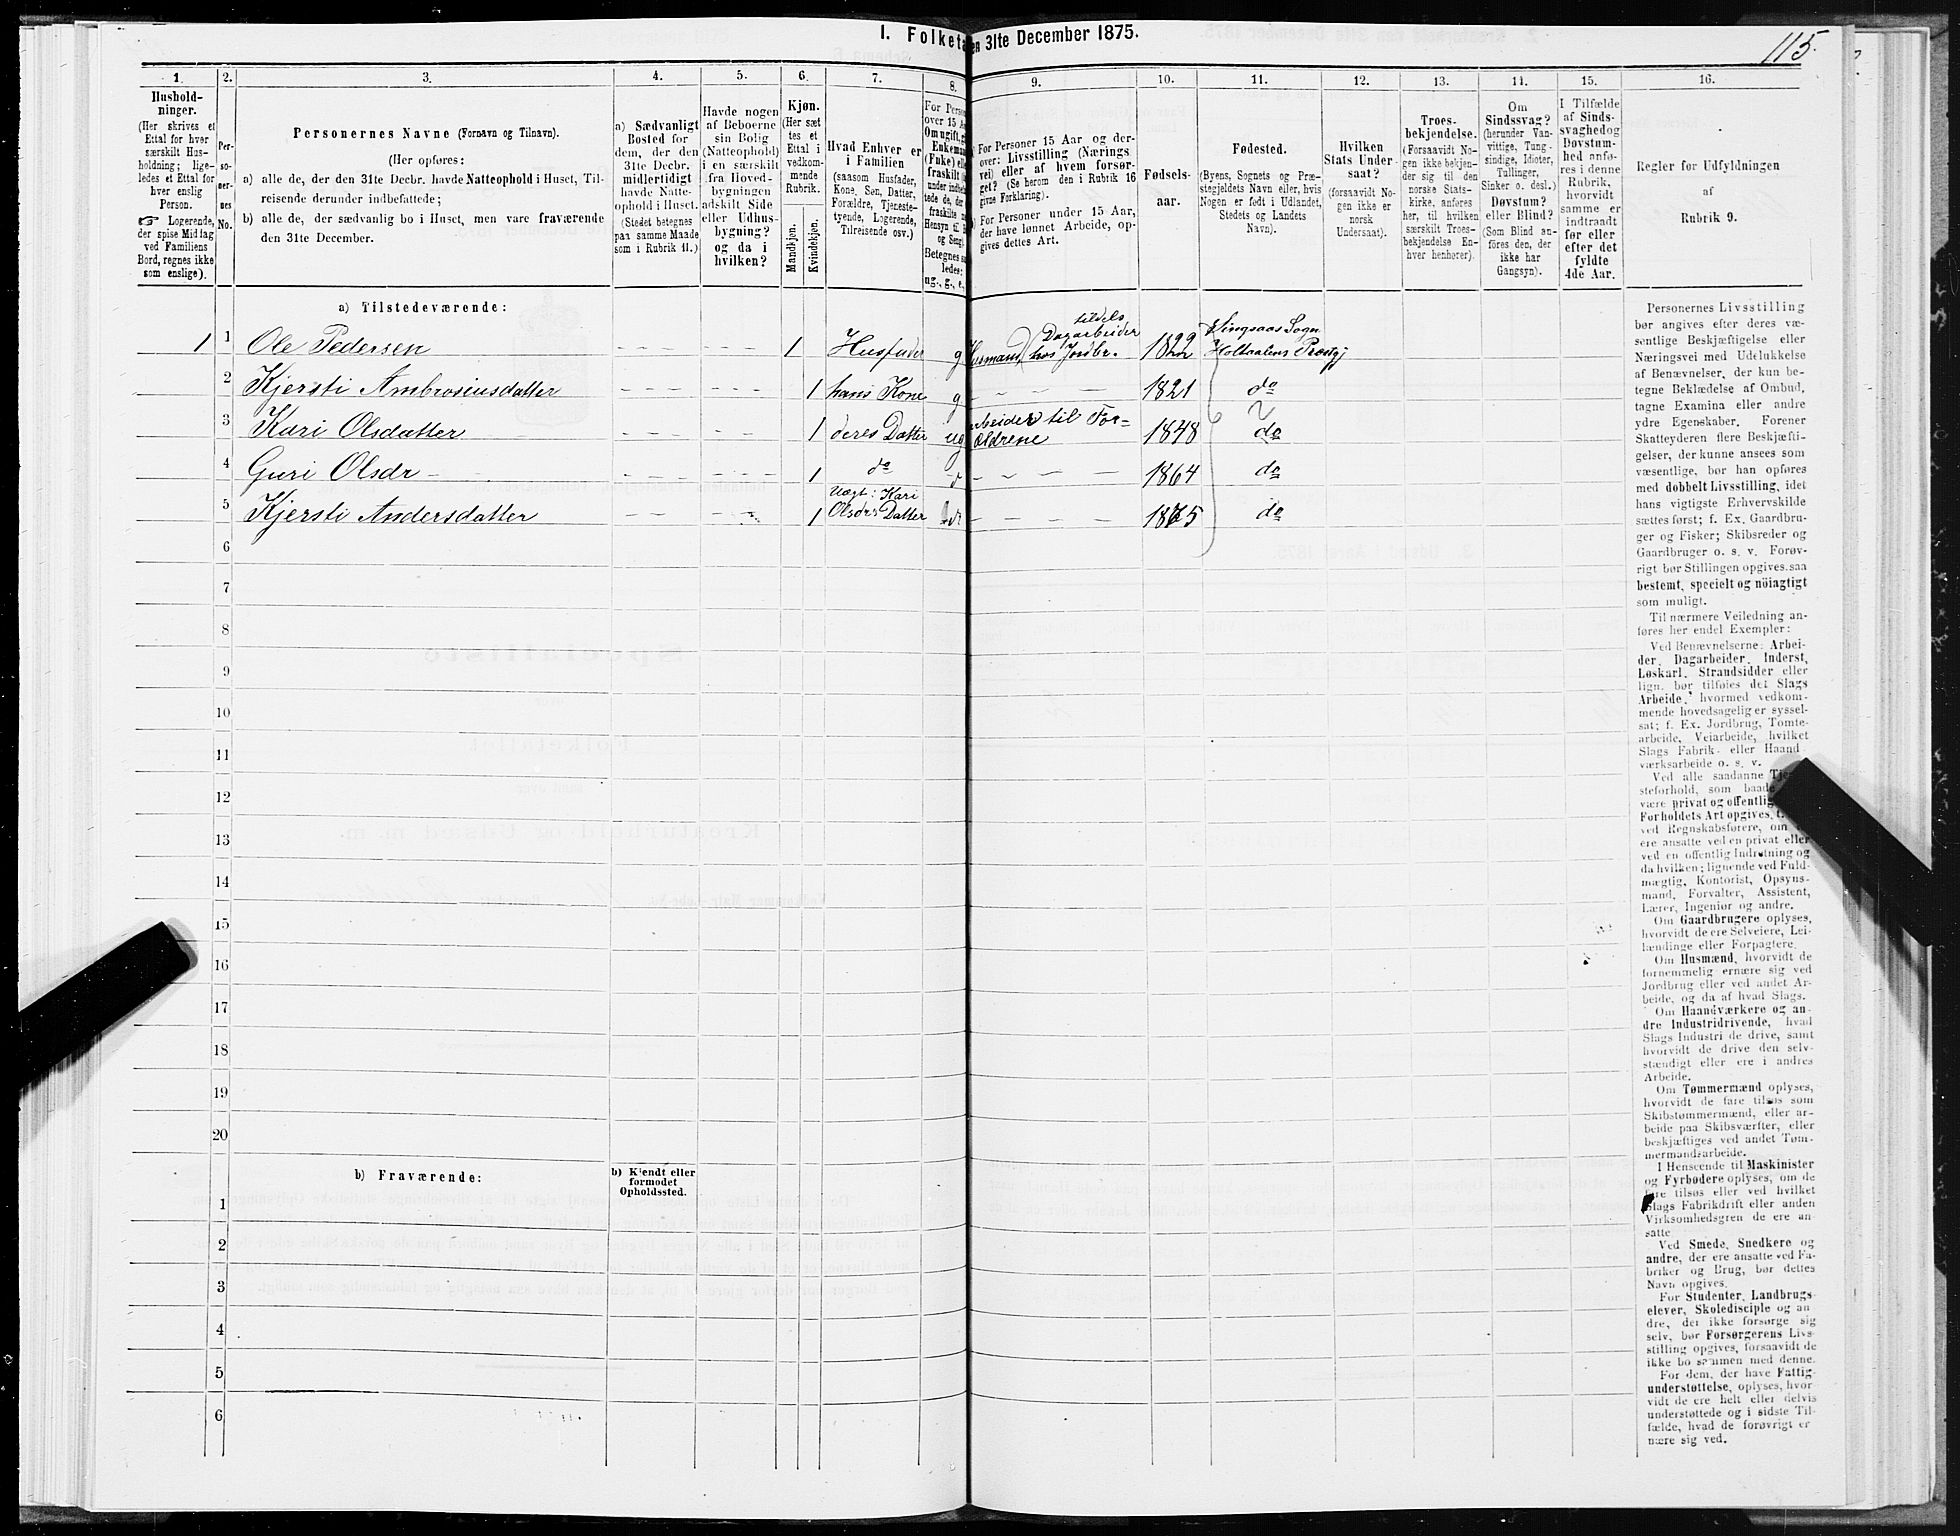 I. Folketa en 31te December 1875.
115.
1. 2. 3. 4. 5. 6. 7. 8. 9. 10. 11. 12. 13. 14. 15. 16.
Hushold-
ninger.
(Her skrives et
Ettal for hver
særskilt Hus-
holdning; lige-
ledes et Ettal for
hver enslig
Person.
☞ Logerende,
der spise Middag
ved Familiens
Bord, regnes ikke
som enslige).
Per-
so-
ner-
nes
No.
Personernes Navne (Fornavn og Tilnavn).
(Her opføres:
a) alle de, der den 31te Decbr. havde Natteophold i Huset, Til-
reisende derunder indbefattede;
b) alle de, der sædvanlig bo i Huset, men vare fraværende
den 31te December.
a) Sædvanligt
Bosted for
dem, der den
31te Decbr.
midlertidigt
havde Natte-
ophold i Huset.
(Stedet betegnes
paa samme Maade
som i Rubrik 11.)
Havde nogen
af Beboerne
sin Bolig
(Natteophold)
i en særskilt
fra Hoved-
bygningen
adskilt Side
eller Udhus-
bygning?
og da i
hvilken?
Kjøn.
(Her sæt
tes et
Ettal i
vedkom-
mende
Rubrik.
Mandkjøn.
Kvindekjøn.
Hvad Enhver er
i Familien
(saasom Husfader,
Kone, Søn, Datter,
Forældre, Tjeneste-
tyende, Logerende,
Tilreisende osv.)
For Person
over 15 Aa
Om ugift, g
Enkeman
(Enke) elle
fraskilt
Betegnes sa
ledes:
ug., g., e.,
For Personer 15 Aar og der-
over: Livsstilling (Nærings
vei) eller af hvem forsør-
get? (Se herom den i Rubrik 16
givne Forklaring).
For Personer under 15 Aar,
der have lønnet Arbeide, op-
gives dettes Art.
Fødsels-
aar.
Fødested.
(Byens, Sognets og Præ-
stegjeldets Navn eller, hvis
Nogen er født i Udlandet,
Stedets og Landets
Navn).
Hvilken
Stats Under-
saat?
(forsaavidt No-
gen ikke er
norsk
Undersaat).
Troes-
bekjendelse.
(Forsaavidt No-
gen ikke bekjen-
der sig til den
norske Stats-
kirke, anføres
her, til hvilken
særskilt Troes-
bekjendelse En-
hver henhører).
Om
Sindssvag?
(herunder Van-
vittige, Tung-
sindige, Idioter,
Tullinger,
Sinker o. desl.)
Døvstum?
eller Blind?
(Som Blind an-
føres den, der
ikke har
Gangsyn).
I Tilfælde
af Sinds-
svaghedog
Døvstum-
hed anfø-
res i denne
Rubrik,
hvorvidt
samme er
indtraadt
før eller
efter det
fyldte
4de Aar.
Regler for Udfyldningen
af
Rubrik 9.
a) Tilstedeværende:
1 1 Ole Pedersen 1 Husfader g Husmand, tildels Dagarbeider hos Jordbr. 1822 Singsaas Sogn Holtaalens Præstgj
2 Kjersti Ambrosiusdatter 1 hans Kone g 1821 do
3 Kari Olsdatter 1 deres Datter ug arbeider til For-ældrene 1848 do
4 Guri Olsdr 1 do 1864 do
5 Kjersti Andersdatter 1 Uægt: Kari Olsdrs Datter 1875 do
6
7
8
9
10
11
12
13
14
15
16
17
18
19
20
b) Fraværende:
b) Kjendt eller
formodet
Opholdssted.
1
2
3
4
5
6
Personernes Livsstilling
bør angives efter deres væ-
sentlige Beskjæftigelse eller
Næringsvei med Udelukkelse
af Benævnelser, der kun be-
tegne Beklædelse af Ombud,
tagne Examina eller andre
ydre Egenskaber. Forener
Skatteyderen flere Beskjæfti-
gelser, der kunne ansees som
væsentlige, bør han opføres
med dobbelt Livsstilling, idet
hans vigtigste Erhvervskilde
sættes først; f. Ex. Gaardbru-
ger og Fisker; Skibsreder og
Gaardbruger o. s. v. Forøv-
rigt bør Stillingen opgives saa
bestemt, specielt og nöiagtigt
som muligt.
Til nærmere Veiledning an-
føres her endel Exempler:
Ved Benævnelserne: Arbei-
der, Dagarbeider, Inderst,
Løskarl, Strandsidder eller
lign. bør tilføies det Slags
Arbeide, hvormed vedkom-
mende hovedsagelig er syssel-
sat; f. Ex. Jordbrug, Tomte-
arbeide, Veiarbeide, hvilket
Slags Fabrik- eller Haand-
værksarbeide o. s. v.
Ved alle saadanne
steforhold, som baade
være privat og offentlig,
Forholdets Art opgives,
ved Regnskabsførere, om
ere ansatte ved en privat eller
ved en offentlig Indretning og
da hvilken; lignende ved Fuld-
mægtig, Kontorist, Opsyns-
mand, Forvalter, Assistent,
Lærer, Ingeniør og andre.
Om Gaardbrugere oplyses,
hvorvidt de ere Selveiere, Lei-
lændinge eller Forpagtere.
Om Husmænd, hvorvidt de
fornemmelig ernære sig ved
Jordbrug eller ved andet Ar-
beide, og da af hvad Slags.
Om Haandværkere og an-
dre Industridrivende, hvad
Slags Industri de drive, samt
hvorvidt de drive den selv-
stændigt eller ere i andres
Arbeide.
Om Tømmermænd oplyses,
hvorvidt de fare tilsøs som
Skibstømmermænd, eller ar-
beide paa Skibsværfter, eller
beskjæftiges ved andet Tøm-
mermandsarbeide.
I Henseende til Maskinister
og Fyrbødere oplyses, om de
fare tilsøs eller ved hvilket
Slags Fabrikdrift eller anden
Virksomhedsgren de ere an-
satte.
Ved Smede, Snedkere og
andre, der ere ansatte ved Fa-
briker og Brug, bør dettes
Navn opgives.
For Studenter, Landbrugs-
elever, Skoledisciple og an
dre, der ikke forsørge sig
selv, bør Forsørgerens Livs-
stilling opgives, forsaavidt de
ikke bo sammen med denne.
For dem, der have Fattig-
understøttelse, oplyses, hvor-
vidt de ere helt eller delvis
understøttede og i sidste Til-
fælde, hvad de forøvrigt er-
nære sig ved.